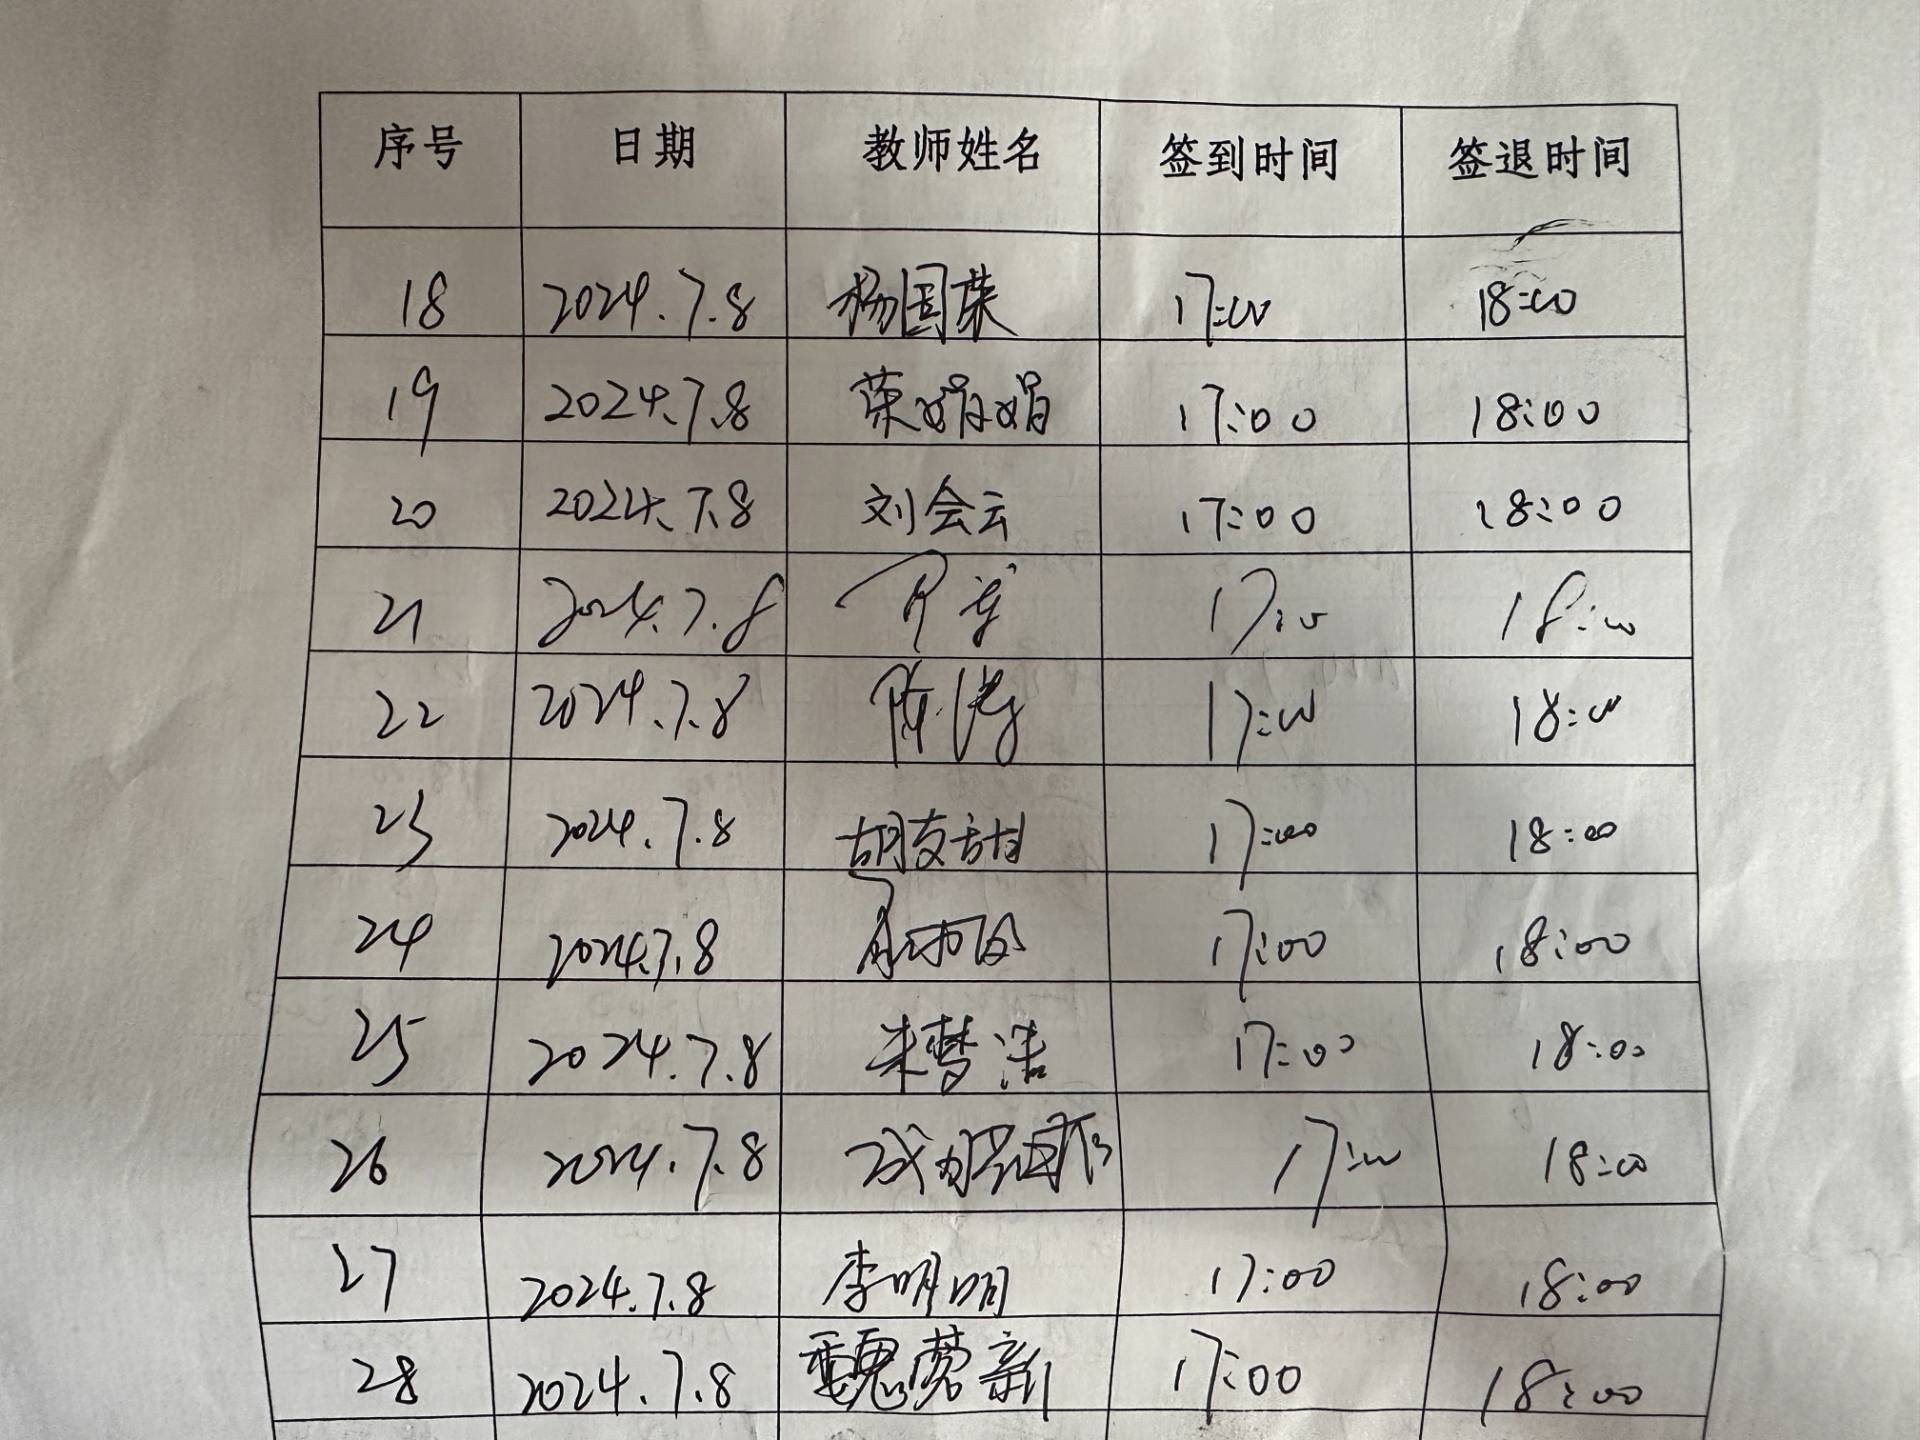 序号 日期 教师姓名 签到时间 签退时间
18 2024.7.8 杨国荣 17:00 18:00
19 2024.7.8 荣娟娟 17:00 18:00
20 2024.7.8 刘会云 17:00 18:00
21 2024.7.8 17:00 18:00
22 2024.7.8 陈涛 17:00 18:00
23 2024.7.8 胡文甜 17:00 18:00
24 2024.7.8 17:00 18:00
25 2024.7.8 朱梦浩 17:00 18:00
26 2024.7.8 17:00 18:00
27 2024.7.8 李明明 17:00 18:00
28 2024.7.8 新 17:00 18:00